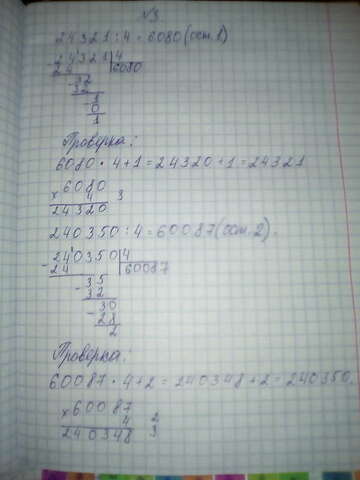 №3
24321 : 4 = 6080 (ост. 1)
- 24321 | 4
24 | 6080
- 32
32
- 1
0
1
Проверка:
6080 · 4 + 1 = 24320 + 1 = 24321
× 6080
4 3
24320
240350 : 4 = 60087 (ост. 2).
- 240350 | 4
24 | 60087
- 35
32
- 30
28
2
Проверка:
60087 · 4 + 2 = 240348 + 2 = 240350.
× 60087
4 2
240348 3